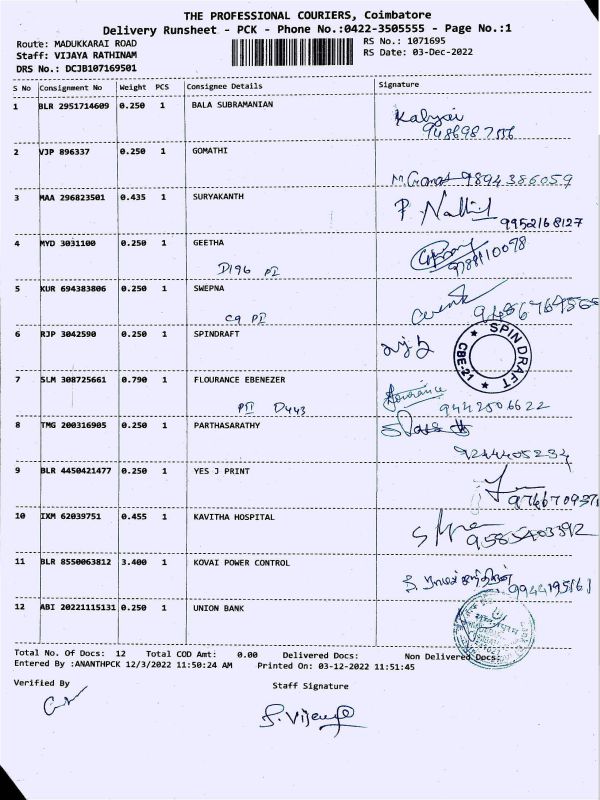 THE PROFESSIONAL COURIERS, Coimbatore
Delivery Runsheet - PCK - Phone No.:0422-3505555 - Page No.:1
Route: MADUKKARAI ROAD RS No.: 1071695
Staff: VIJAYA RATHINAM RS Date: 03-Dec-2022
DRS No.: DCJB107169501
S No Consignment No Weight PCS Consignee Details Signature
1 BLR 2951714609 0.250 1 BALA SUBRAMANIAN
2 VJP 896337 0.250 1 GOMATHI
9894386059
3 MAA 296823501 0.435 1 SURYAKANTH
9952168127
4 MYD 3031100 0.250 1 GEETHA
D196 PI
5 KUR 694383806 0.250 1 SWEPNA
C9 PI
6 RJP 3042590 0.250 1 SPINDRAFT
SPIN DRAFT
CBE-21
7 SLM 308725661 0.790 1 FLOURANCE EBENEZER
PII D443 9442506622
8 TMG 200316905 0.250 1 PARTHASARATHY
9244405234
9 BLR 4450421477 0.250 1 YES J PRINT
10 IXM 62039751 0.455 1 KAVITHA HOSPITAL
9585403392
11 BLR 8550063812 3.400 1 KOVAI POWER CONTROL
12 ABI 20221115131 0.250 1 UNION BANK
Total No. Of Docs: 12 Total COD Amt: 0.00 Delivered Docs: Non Delivered Docs:
Entered By :ANANTHPCK 12/3/2022 11:50:24 AM Printed On: 03-12-2022 11:51:45
Verified By Staff Signature